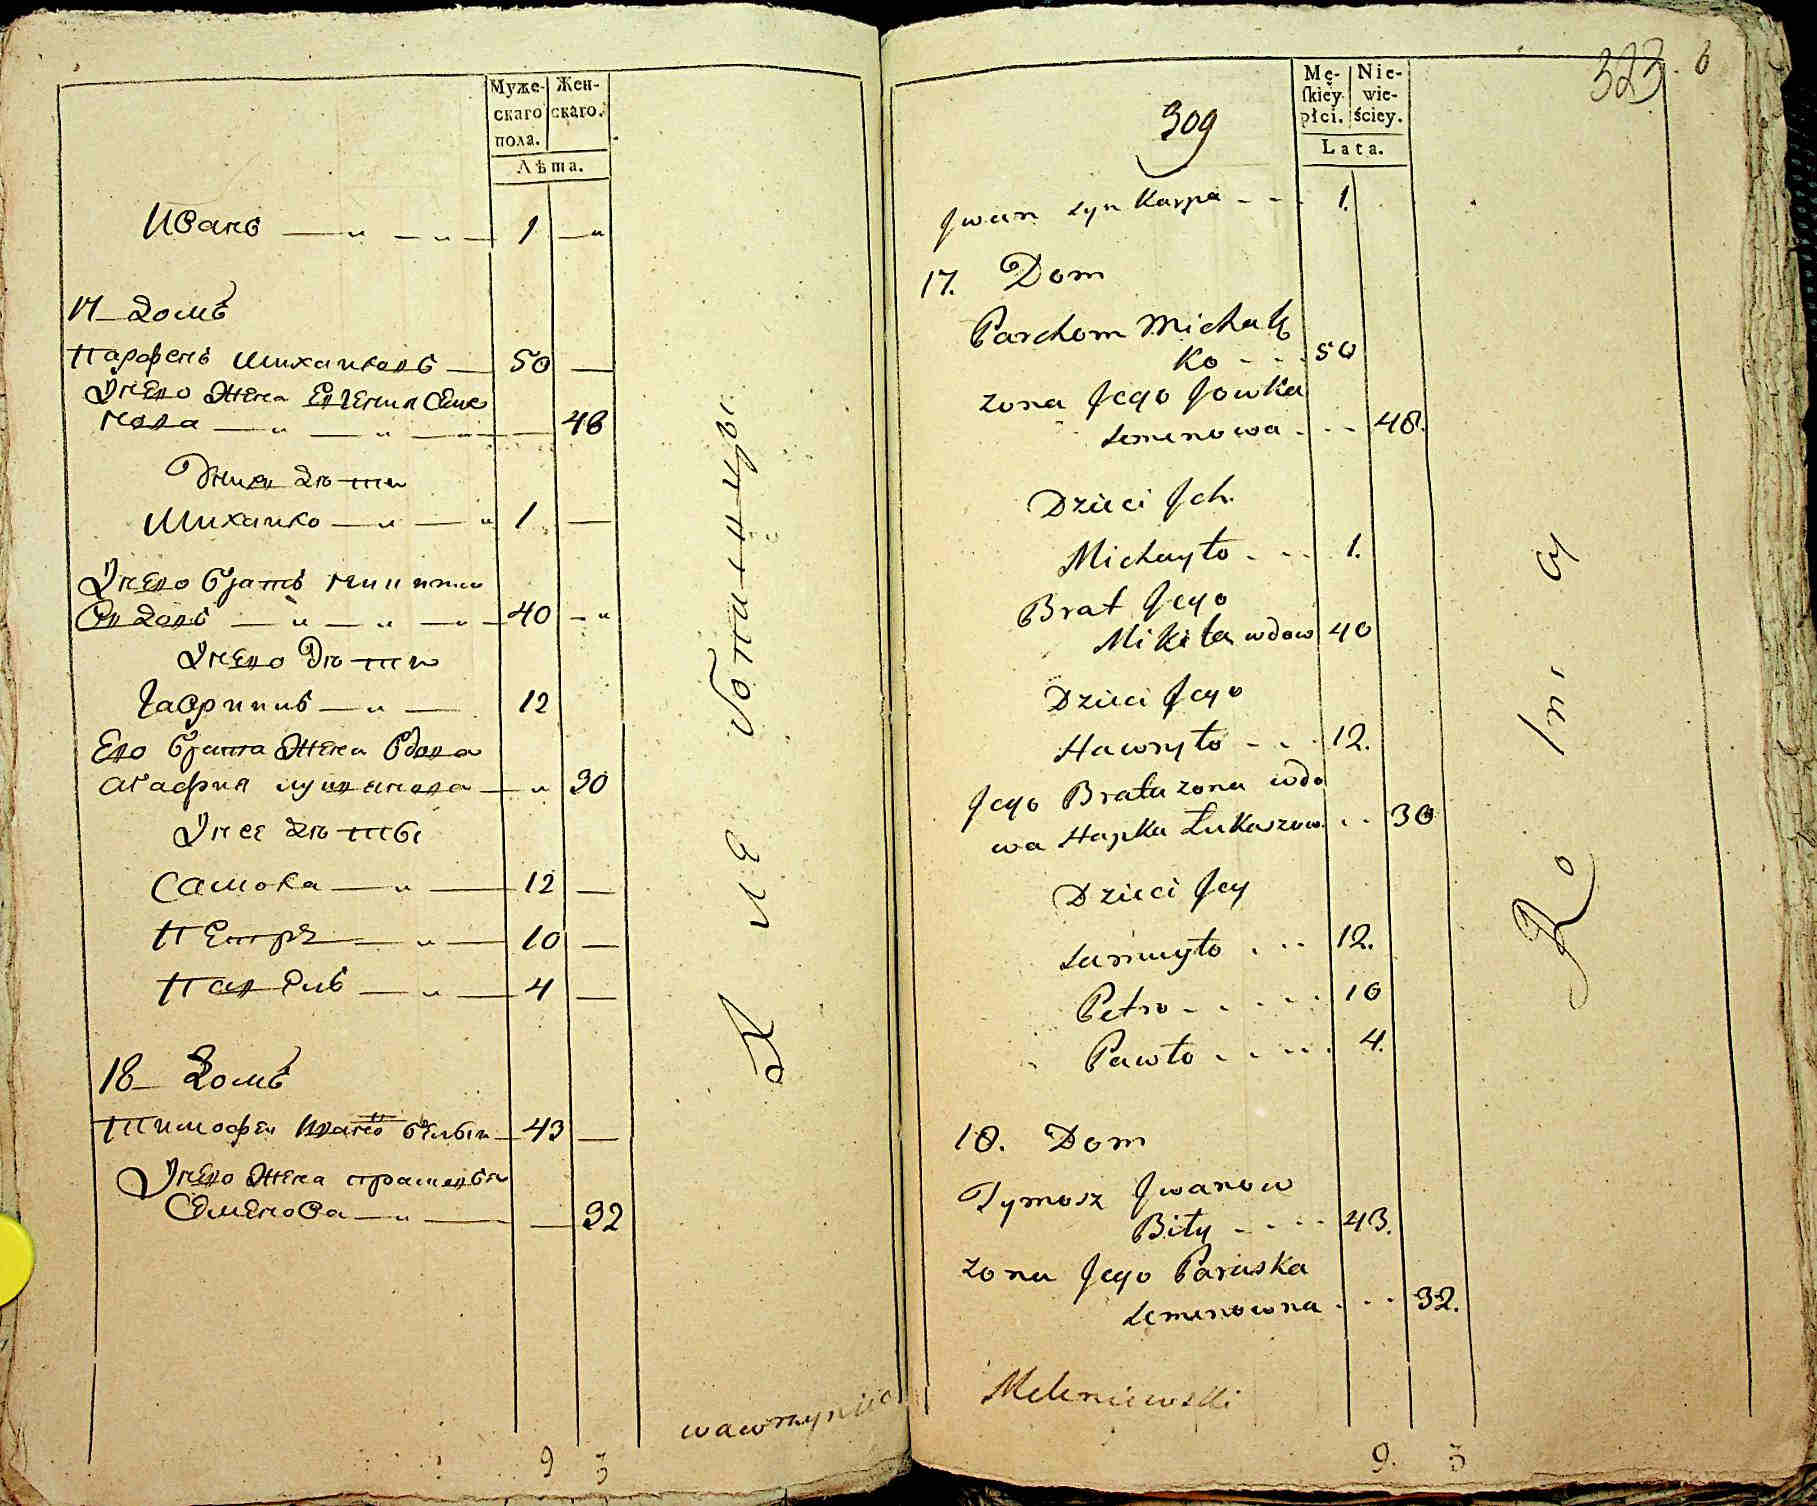 Муже-
скаго
пола.
Жен-
скаго.
Лѣта.
Иванъ 1
17 Домъ
Парфенъ Михайловъ 50
У него жена Евгения Семе
нова 48
У них дѣти
Михайло 1
У него братъ Никита
вдовъ 40
У него дѣти
Гаврилъ 12
Его брата жена вдова
Агафия Лукьянова 30
У нее дѣты
Самойла 12
Петръ 10
Павелъ 4
18 Домъ
Тимофей Ивановъ Белый 43
У него жена
Семенова 32
9 3
wawrzyniec
323
309
Mę-
skiey
płci.
Nie-
wie-
ściey.
Lata.
Jwan syn Karpa 1.
17. Dom
Parchom Michał
ko 50
zona Jego Jowka
Semenowa 48.
Dzieci Jch.
Michayło 1.
Brat Jego
Mikita wdow 40
Dzieci Jego
Hawryło 12.
Jego Brata zona wdo
wa Hapka Łukaszow. 30
Dzieci Jey
Samuyło 12.
Petro 10
Pawło 4.
18. Dom
Tymosz Jwanow
Biły 43.
zona Jego Paraska
Semenowna 32.
Meleniewski
9. 3